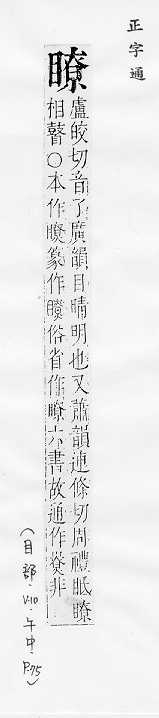 正字通
瞭
盧皎切音了廣韻目睛明也又蕭韻連條切周禮眡瞭
相瞽○本作瞭篆作瞭俗省作瞭六書故通作尞非
(目部．V.10．午中．P.75)